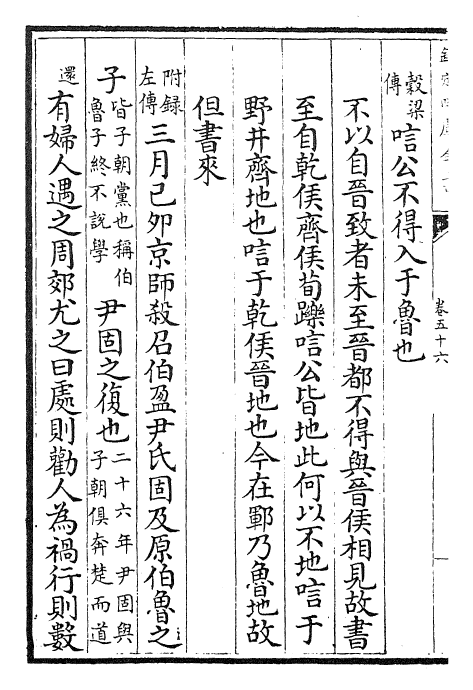 欽定四庫全書
卷五十六
穀梁傳唁公不得入于魯也
不以自晉致者未至晉都不得與晉侯相見故書
至自乾侯齊侯荀躒唁公皆地此何以不地唁于
野井齊地也唁于乾侯晉地也今在鄆乃魯地故
但書來
附録左傳三月己卯京師殺召伯盈尹氏固及原伯魯之
子皆子朝黨也稱伯魯子終不說學尹固之復也二十六年尹固與子朝俱奔楚而道
還有婦人遇之周郊尤之曰處則勸人為禍行則數